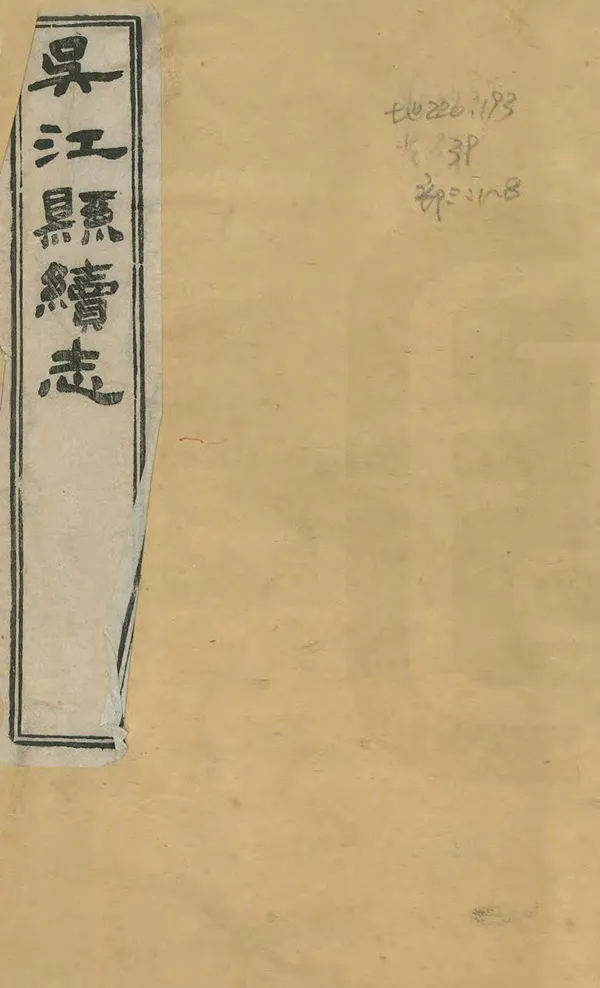 吳江縣續志
地220.193
39